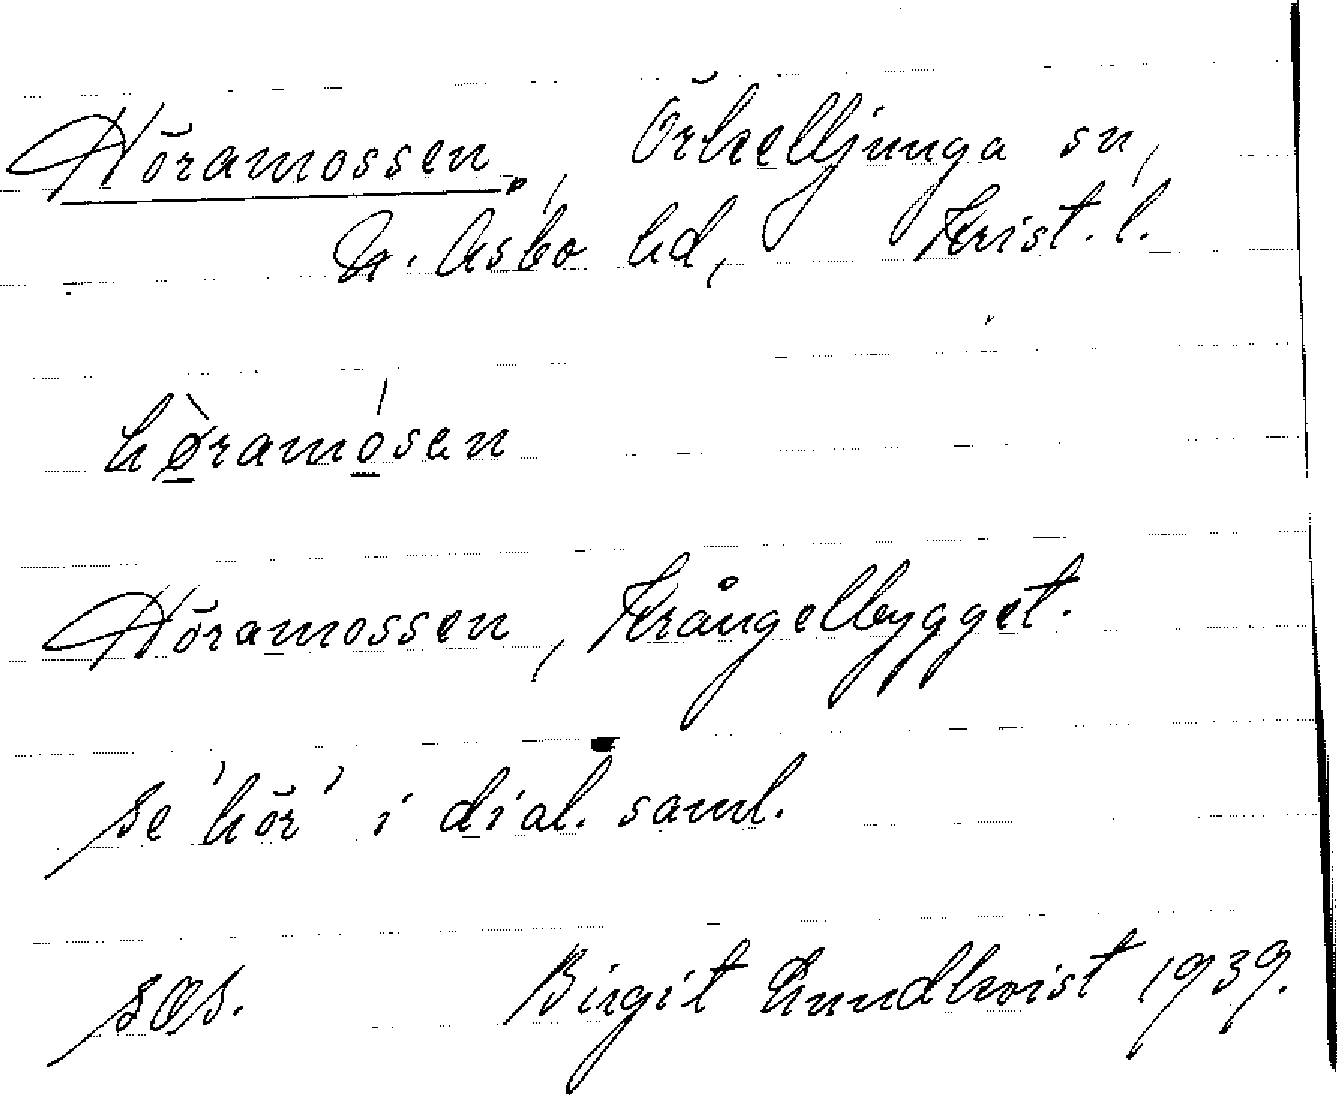 Höramossen, Örkelljunga sn,
N. Åsbo hd, Krist. l.
hø̀ramósen
Höramossen, Krångelbygget.
se 'hör' i dial. saml.
Birgit Lundkvist 1939.